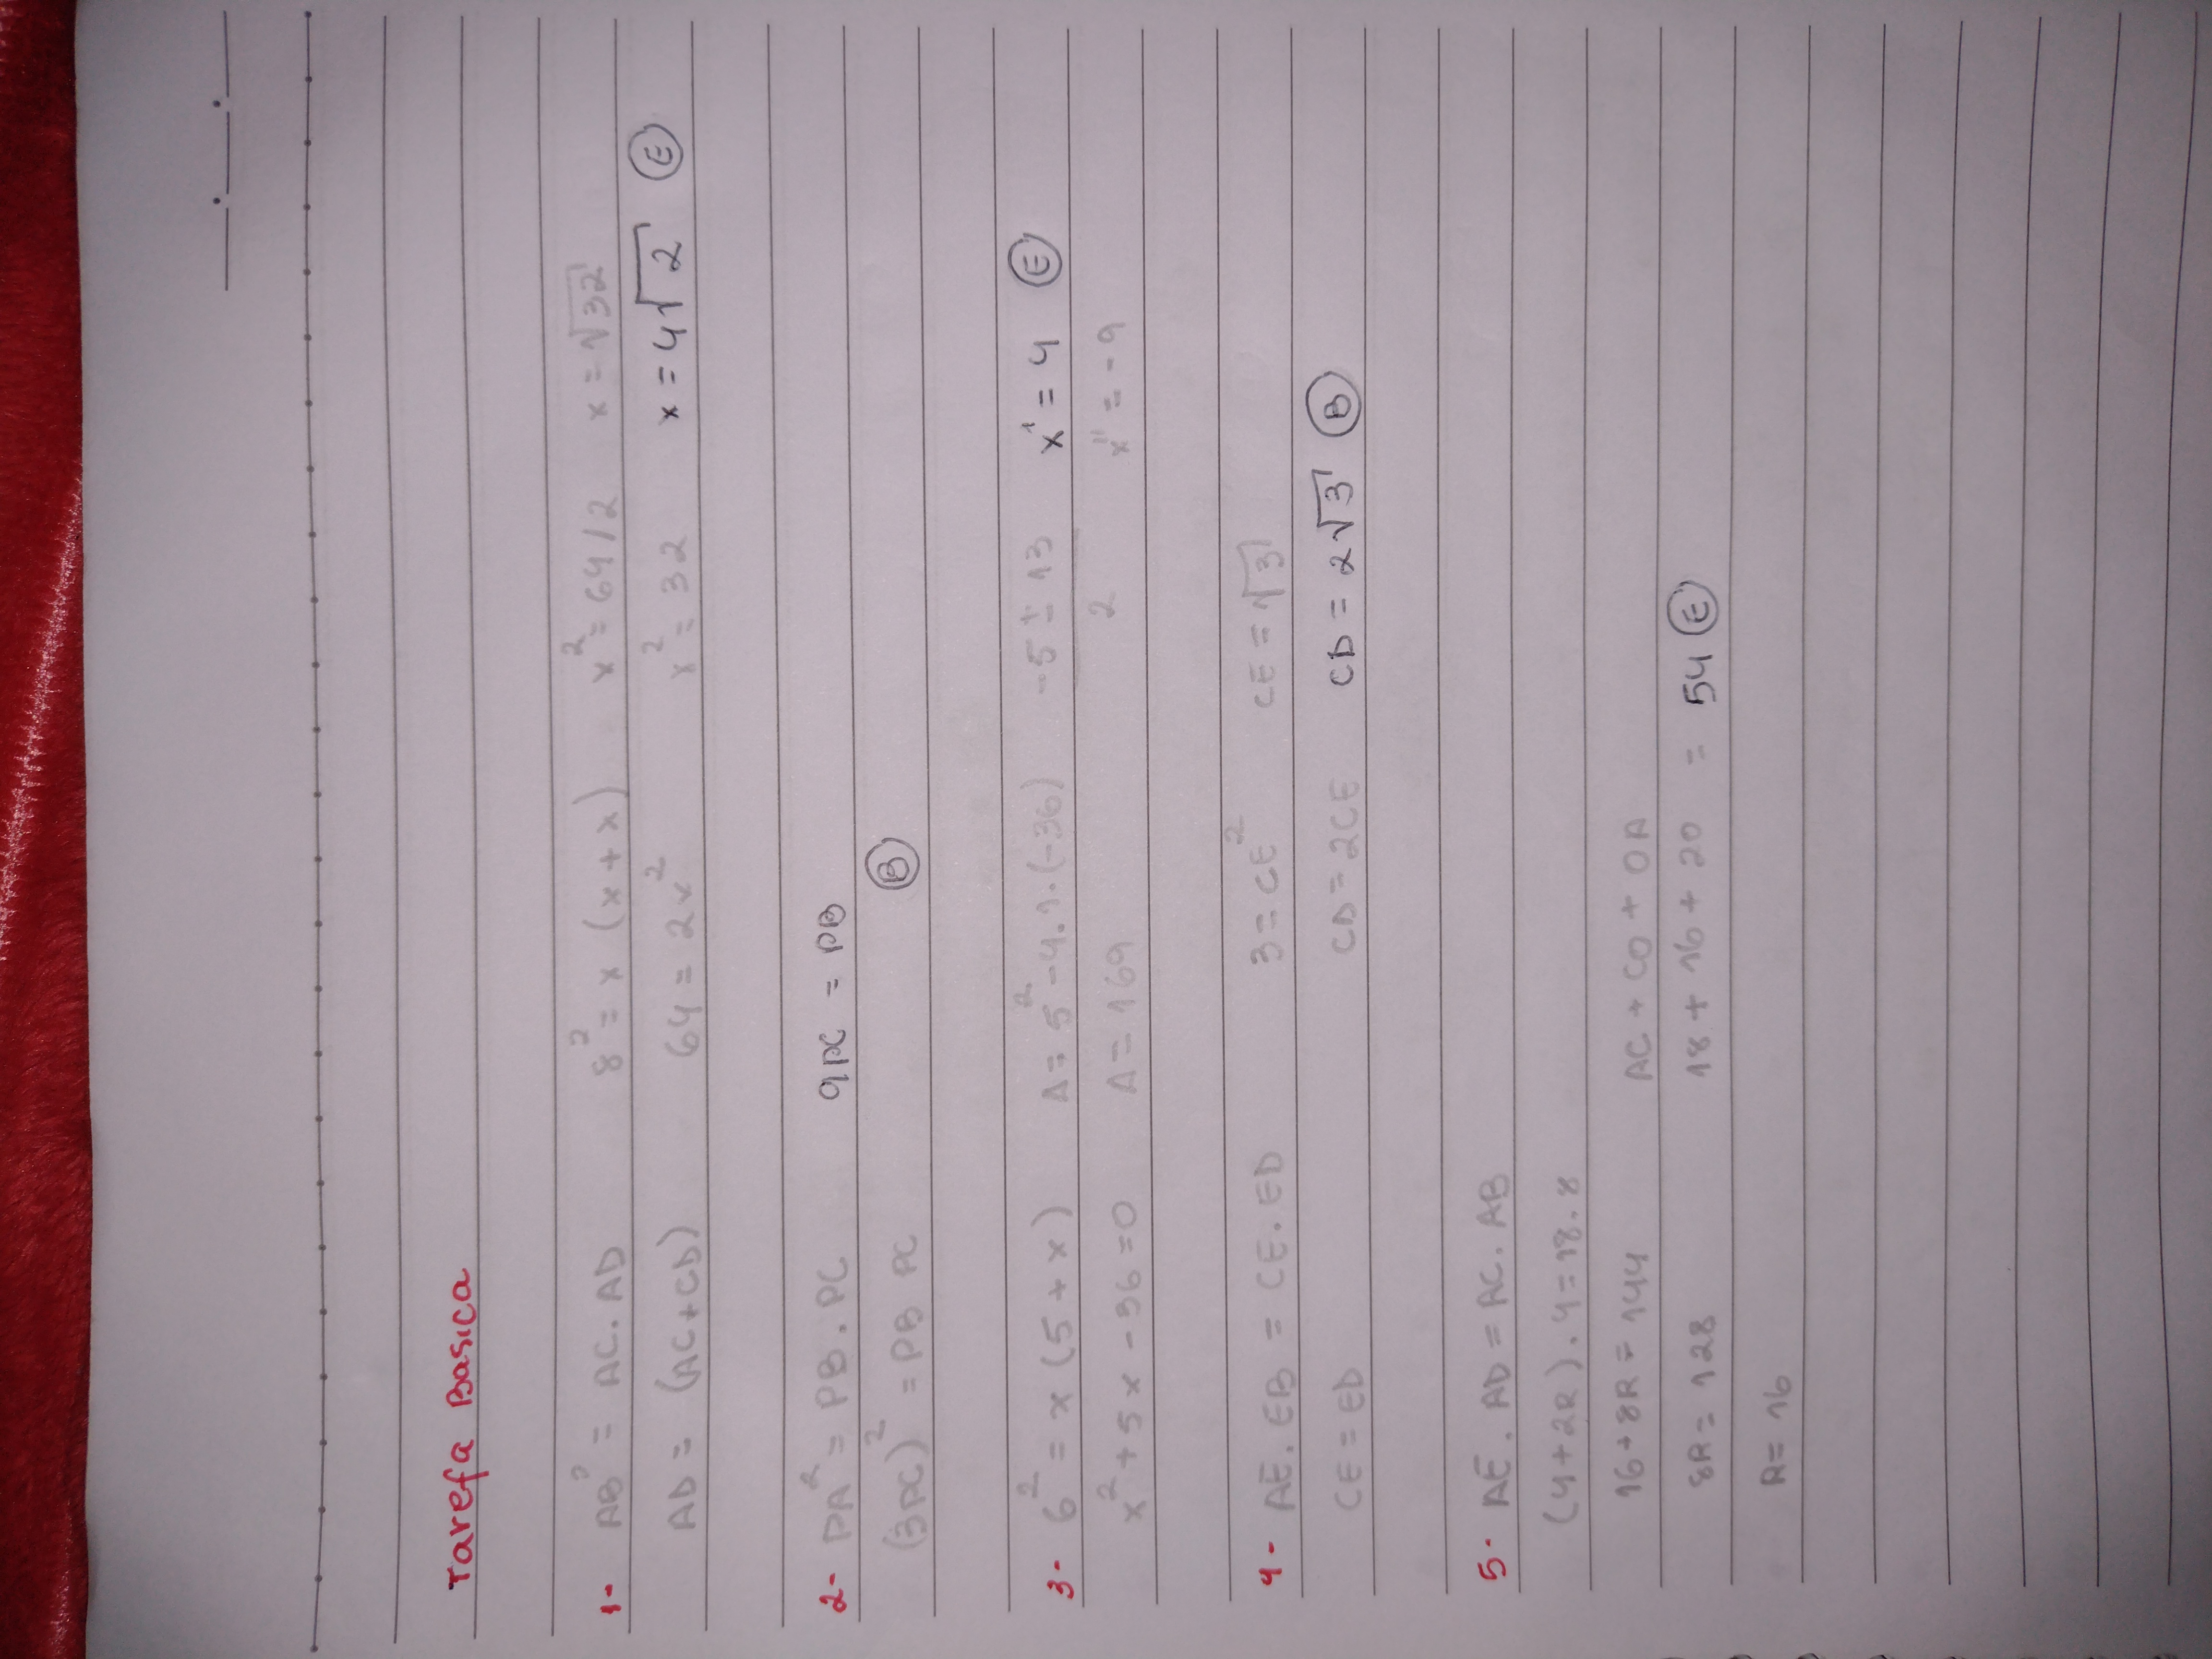 Tarefa Basica
1- AB² = AC. AD 8² = x (x+x) x² = 64/2 x = √32
AD = (AC+CD) 64 = 2x² x² = 32 x = 4√2 (E)
2- PA² = PB. PC 9PC = PB
(3PC)² = PB PC (B)
3- 6² = x (5+x) Δ= 5² -4.1.(-36) -5 ± 13 x' = 4 (E)
x² + 5x - 36 = 0 Δ = 169 2 x'' = -9
4- AE. EB = CE. ED 3 = CE² CE = √3
CE = ED CD = 2CE CD = 2√3 (B)
5- AE. AD = AC. AB
(4+2R).4 = 18.8
16+8R = 144 AC + CO + OA
8R = 128 18 + 16 + 20 = 54 (E)
R = 16